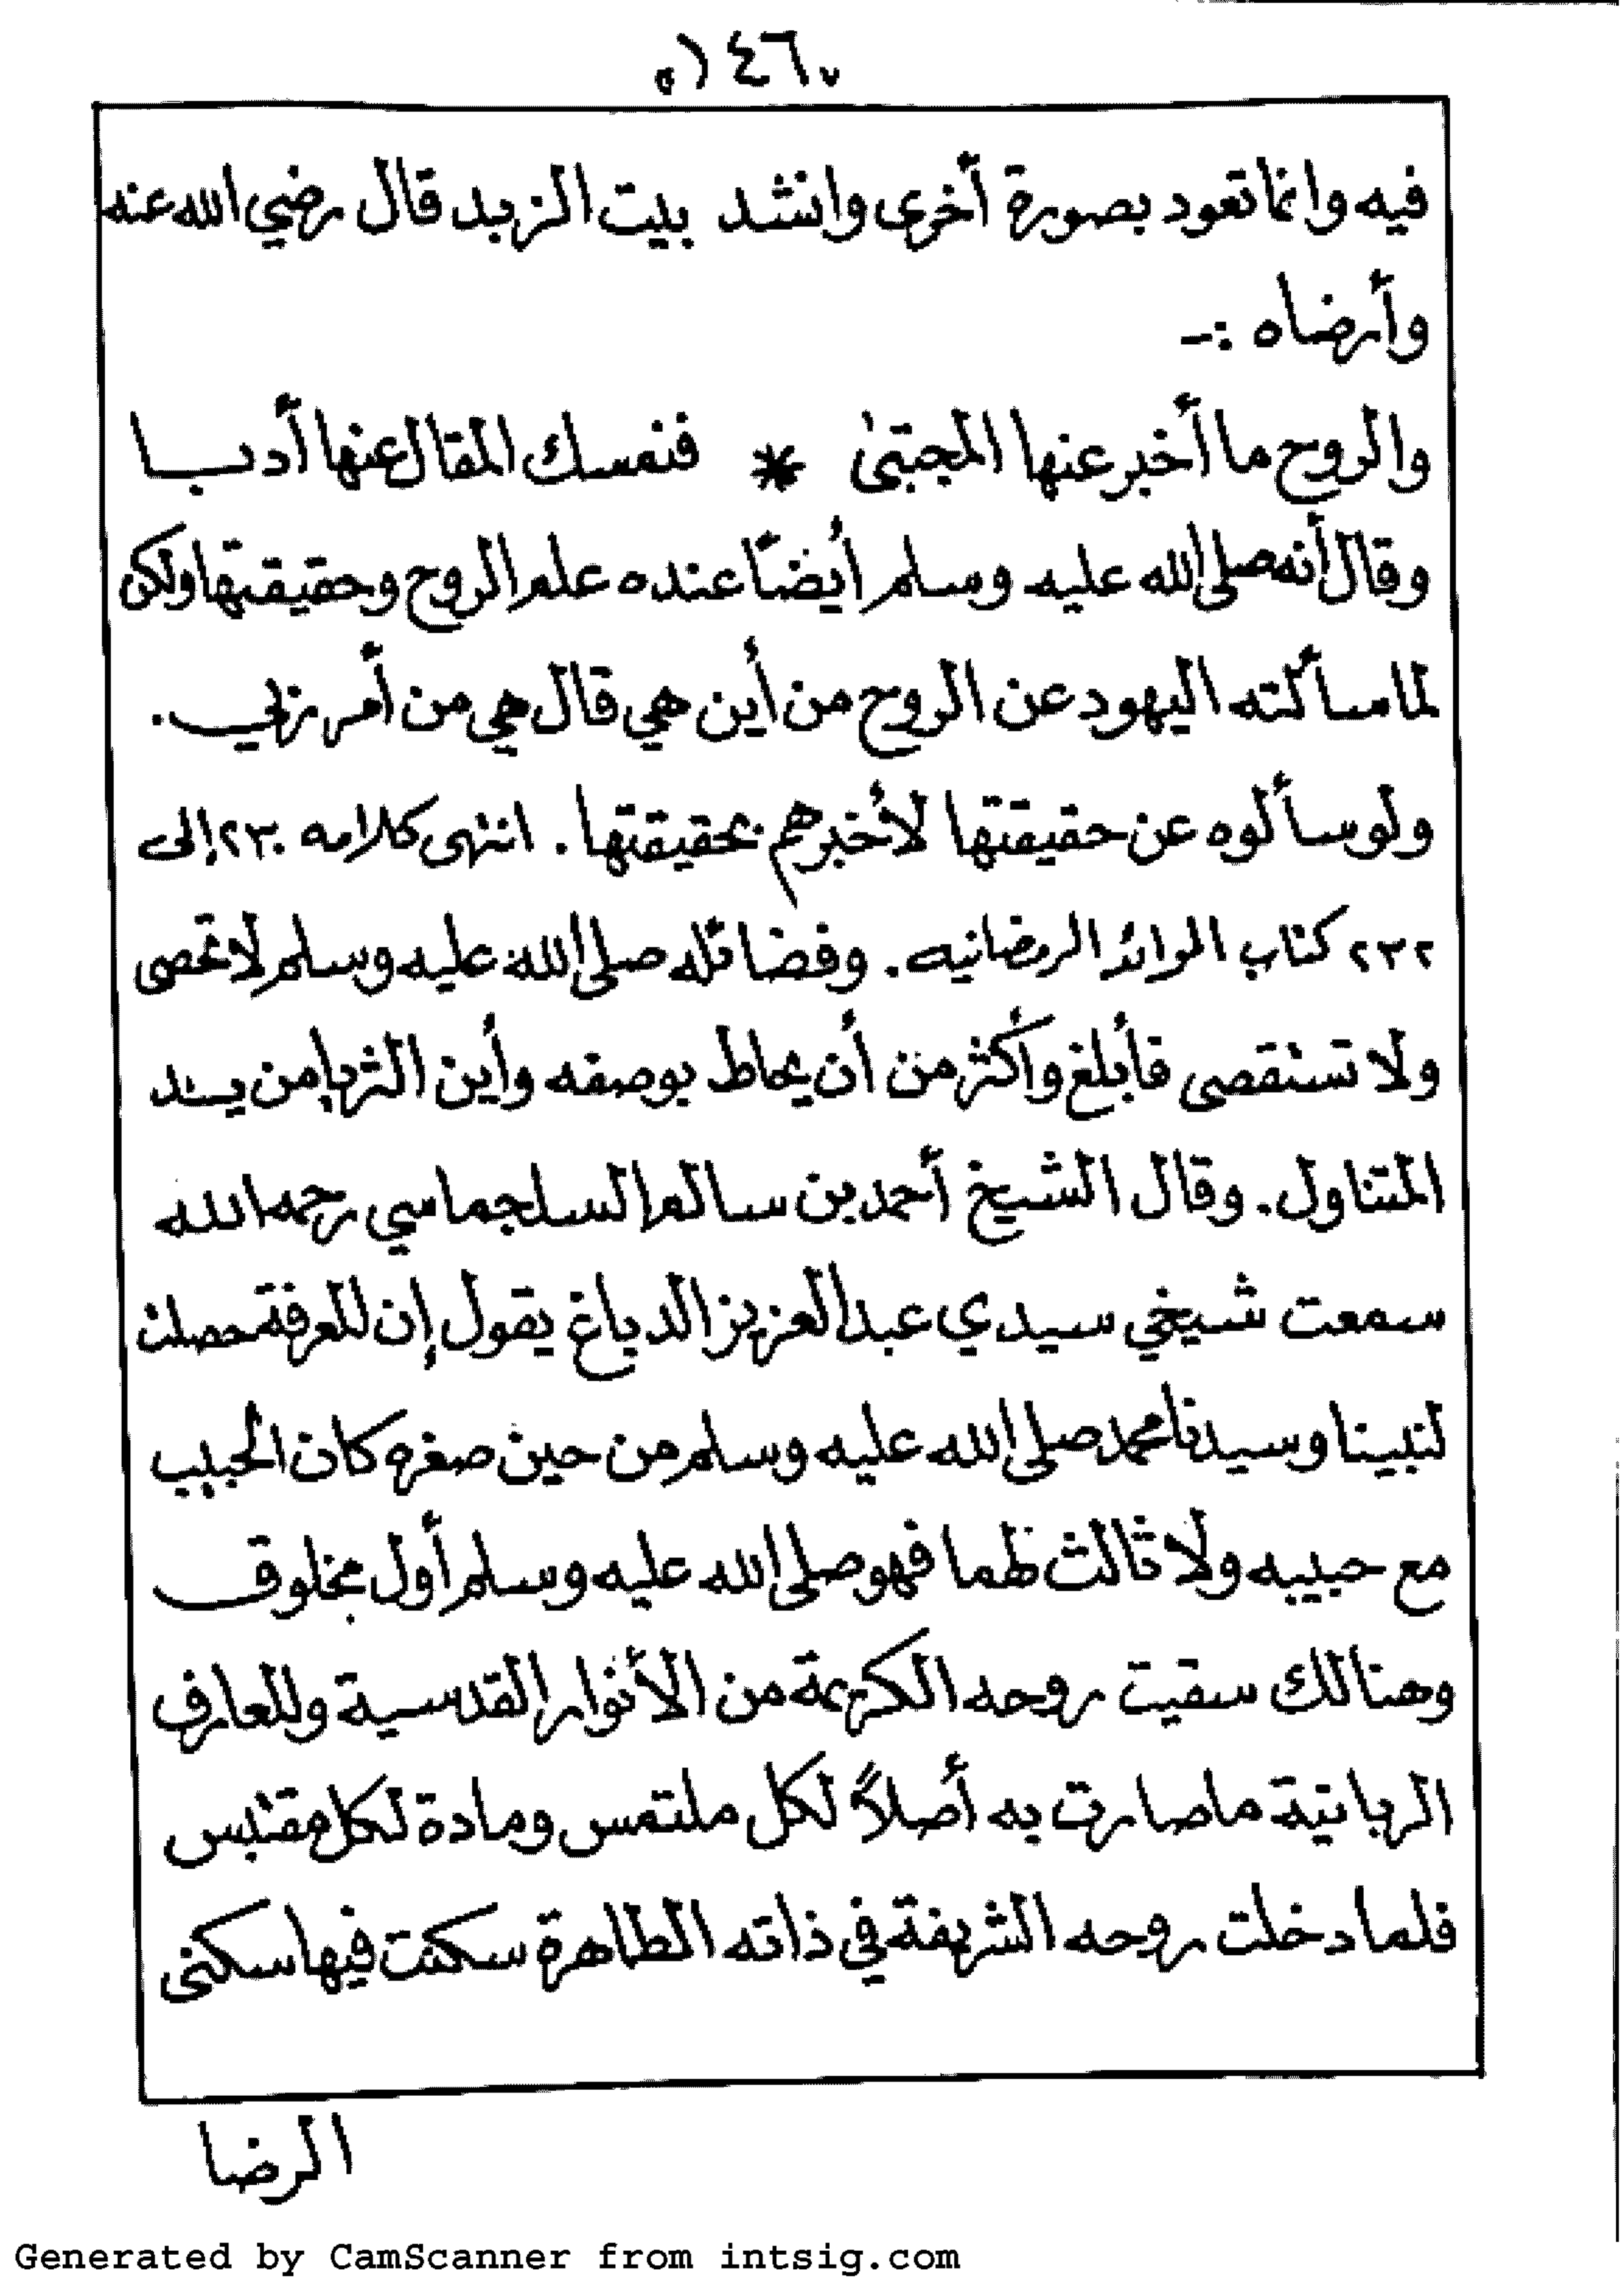 ١٤٦
فيه وانما تعود بصورة أخرى وانشد بيت الزبد قال رضي الله عنه
وأرضاه :-
والروح ما أخبر عنها المجتبىٰ * فنمسك المقال عنها أدبا
وقال أنه صلى الله عليه وسلم أيضًا عنده علم الروح وحقيقتها ولكن
لما سألته اليهود عن الروح من أين هي قال هي من أمر ربي .
ولو سألوه عن حقيقتها لأخبرهم بحقيقتها . انتهى كلامه ٢٣٠ إلى
٢٣٢ كتاب الموائد الرمضانيه . وفضائله صلى الله عليه وسلم لا تحصى
ولا تستقصى فأبلغ وأكثر من أن يحاط بوصفه وأين الثريا من يد
المتناول . وقال الشيخ أحمد بن سالم السلجماسي رحمه الله
سمعت شيخي سيدي عبد العزيز الدباغ يقول إن المعرفة حصلت
لنبينا وسيدنا محمد صلى الله عليه وسلم من حين صغره كان الحبيب
مع حبيبه ولا ثالث لهما فهو صلى الله عليه وسلم أول مخلوق
وهنالك سقيت روحه الكريمة من الأنوار القدسية والمعارف
الربانية ما صارت به أصلاً لكل ملتمس ومادة لكل مقتبس
فلما دخلت روحه الشريفة في ذاته الطاهرة سكنت فيها سكنى
الرضا
Generated by CamScanner from intsig.com